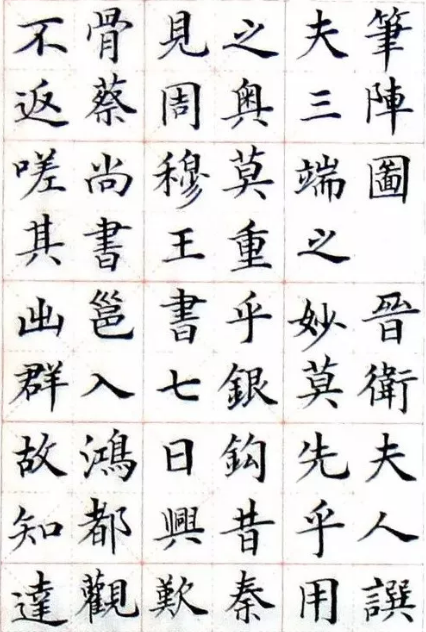 筆陣圖 晉衛夫人譔
夫三端之妙莫先乎用
之奥莫重乎銀鈎昔秦
見周穆王書七日興歎
骨蔡尚書邕入鴻都觀
不返嗟其出群故知達